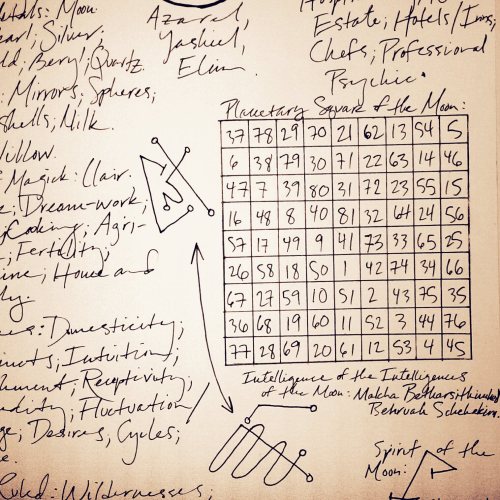 Moon
Silver;
Beryl; Quartz
Mirrors; Spheres;
shells; Milk.
Willow.
Magick: Clair.
Dream-work;
Cooking; Agri-
Fertility;
Home and
Domesticity;
Intuition;
Receptivity;
Fluctuation
Desires; Cycles;
Ruled: Wildernesses;
Azarel,
Yashiel,
Estate; Hotels/Inns;
Chefs; Professional
Psychic.
Planetary Square of the Moon:
37 78 29 70 21 62 13 54 5
6 38 79 30 71 22 63 14 46
47 7 39 80 31 72 23 55 15
16 48 8 40 81 32 64 24 56
57 17 49 9 41 73 33 65 25
26 58 18 50 1 42 74 34 66
67 27 59 10 51 2 43 75 35
36 68 19 60 11 52 3 44 76
77 28 69 20 61 12 53 4 45
Intelligence of the Intelligences
of the Moon: Malcha
Spirit of the
Moon: